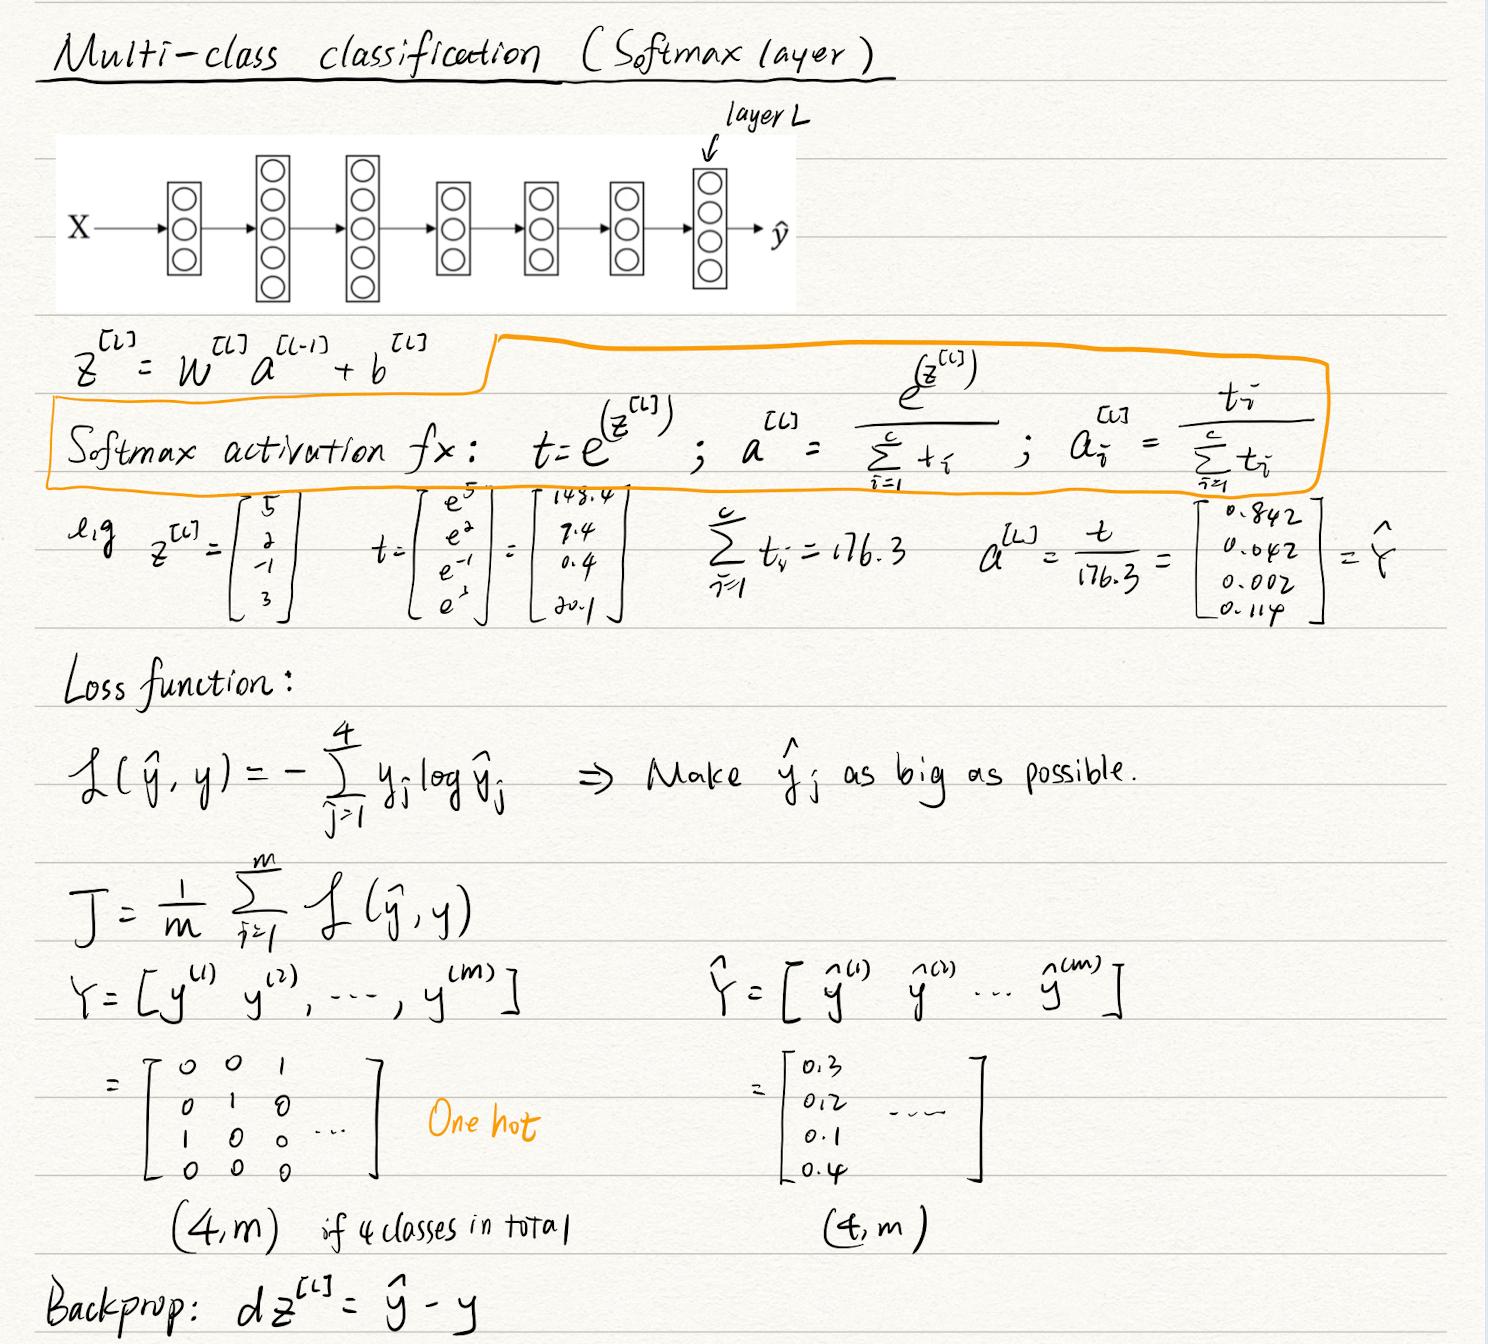 Multi-class classification (Softmax layer)
layer L
X ŷ
z^[L] = W^[L] a^[L-1] + b^[L]
Softmax activation fx: t = e^(z^[L]) ; a^[L] = e^(z^[L]) / Σ_{i=1}^{c} t_i ; a_i^[L] = t_i / Σ_{i=1}^{c} t_i
e.g z^[L] = [5 2 -1 3] t = [e^5 e^2 e^-1 e^3] = [148.4 7.4 0.4 20.1] Σ_{i=1}^{c} t_i = 176.3 a^[L] = t / 176.3 = [0.842 0.042 0.002 0.114] = Ŷ
Loss function:
L(ŷ, y) = - Σ_{j=1}^{4} y_j log ŷ_j ⇒ Make ŷ_j as big as possible.
J = 1/m Σ_{i=1}^{m} L(ŷ, y)
Y = [y^(1) y^(2), ..., y^(m)] Ŷ = [ŷ^(1) ŷ^(2) ... ŷ^(m)]
= [0 0 1 0.3
0 1 0 0.2
1 0 0 ... One hot = 0.1 ....
0 0 0] 0.4]
(4, m) if 4 classes in total (4, m)
Backprop: dz^[L] = ŷ - y